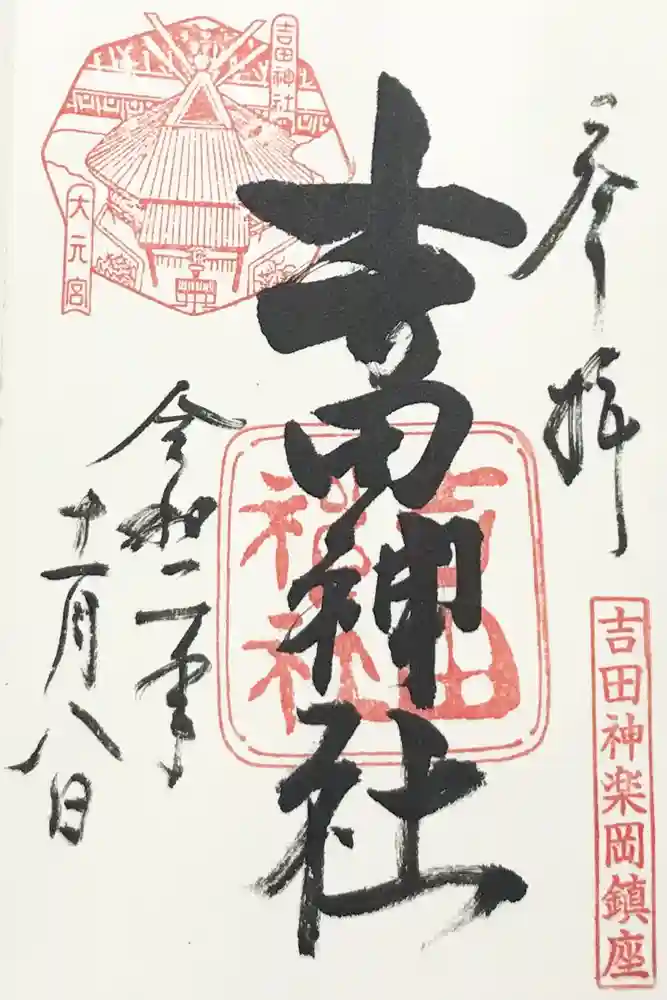 参拝
吉田神楽岡鎮座
吉田神社
吉田神社
令和二年
十一月八日
吉田神社
大元宮